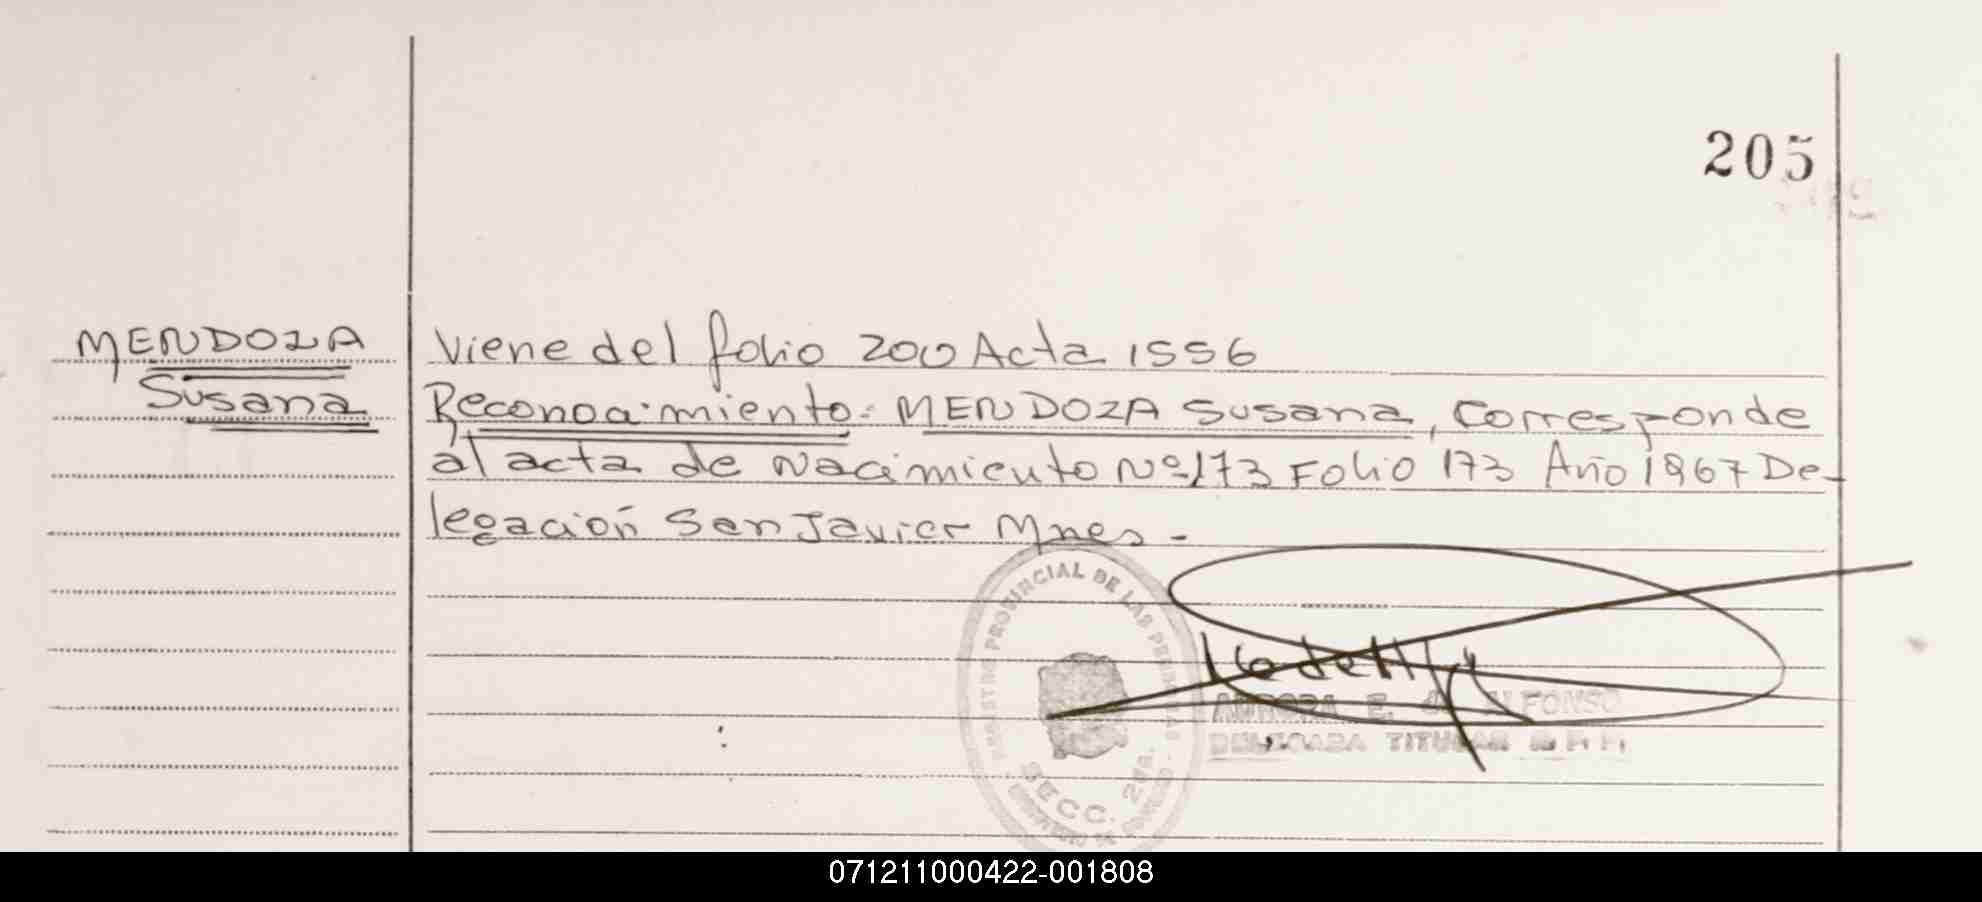 205
MENDOZA
Susana
Viene del folio 200 Acta 1556
Reconocimiento: MENDOZA Susana, Corresponde
al acta de Nacimiento Nº 173 Folio 173 Año 1967 De-
legación San Javier Mnes.-
REGISTRO PROVINCIAL DE LAS PERSONAS
SECC. 2da.
AURORA E. ALFONSO
DELEGADA TITULAR R. P. P.
071211000422-001808